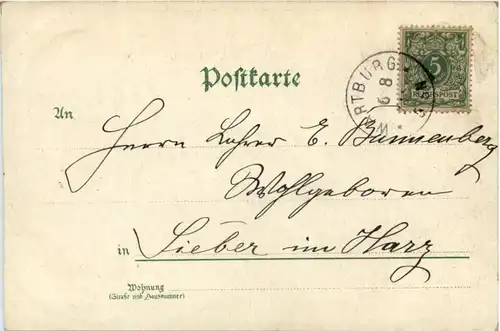 Postkarte
WARTBURG
6 8
5
REICHSPOST
An
Herrn Lehrer E. Bannenberg
Wohlgeboren
in Sieber im Harz
Wohnung
(Straße und Hausnummer)